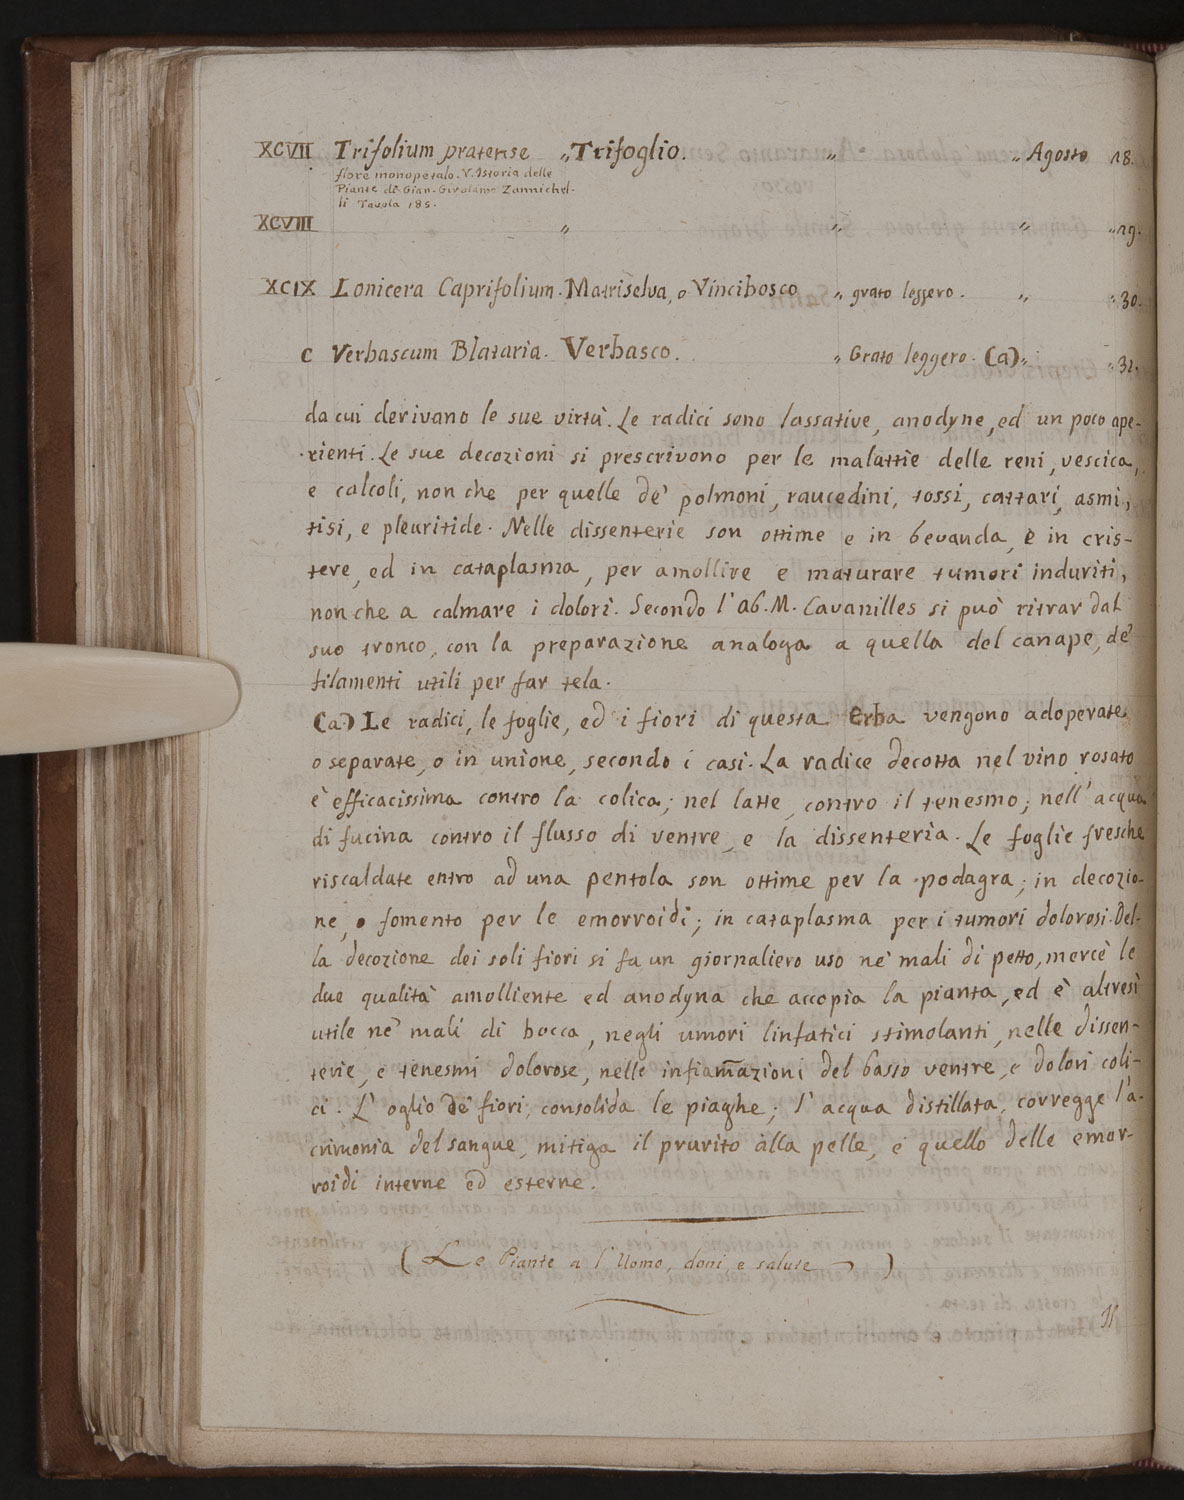 XCVII Trifolium pratense „ Trifoglio. „ „ Agosto 18.
flore monopetalo. V. Istoria delle
Piante di Gian-Girolamo Zannichel-
li Tavola 185.
XCVIII „ „ „ „ 29.
XCIX Lonicera Caprifolium. Matriselva, o Vincibosco „ grato leggero. „ „ 30.
C Verbascum Blataria. Verbasco. „ Grato leggero. (a) „ „ 31.
da cui derivano le sue virtù. Le radici sono lassative, anodyne, ed un poco ape-
rienti. Le sue decozioni si prescrivono per le malattie delle reni, vescica,
e calcoli, non che per quelle de' polmoni, raucedini, tossi, cattari, asmi,
tisi, e pleuritide. Nelle dissenterie son ottime e in bevanda, e in cris-
tere, ed in cataplasma, per amollire e maturare tumori induriti,
non che a calmare i dolori. Secondo l'ab. M. Cavanilles si può ritrar dal
suo tronco, con la preparazione analoga a quella del canape, de'
filamenti utili per far tela.
(a) Le radici, le foglie, ed i fiori di questa Erba vengono adoperate
o separate, o in unione, secondo i casi. La radice decotta nel vino rosato
è efficacissima contro la colica; nel latte, contro il tenesmo; nell'acqua
di fucina contro il flusso di ventre, e la dissenteria. Le foglie fresche
riscaldate entro ad una pentola son ottime per la podagra; in decozio-
ne, o fomento per le emorroidi; in cataplasma per i tumori dolorosi. Del-
la decozione dei soli fiori si fa un giornaliero uso ne' mali di petto, mercè le
due qualità amolliente ed anodyna che accopia la pianta, ed è altresì
utile ne' mali di bocca, negli umori linfatici stimolanti, nelle dissen-
terie, e tenesmi dolorose, nelle infiam̅azioni del basso ventre, e dolori coli-
ci. L'oglio de' fiori, consolida le piaghe; l'acqua distillata, corregge l'a-
crimonia del sangue, mitiga il prurito alla pelle, e quello delle emor-
roidi interne ed esterne.
(Le Piante a l'Uomo, doni, e salute)